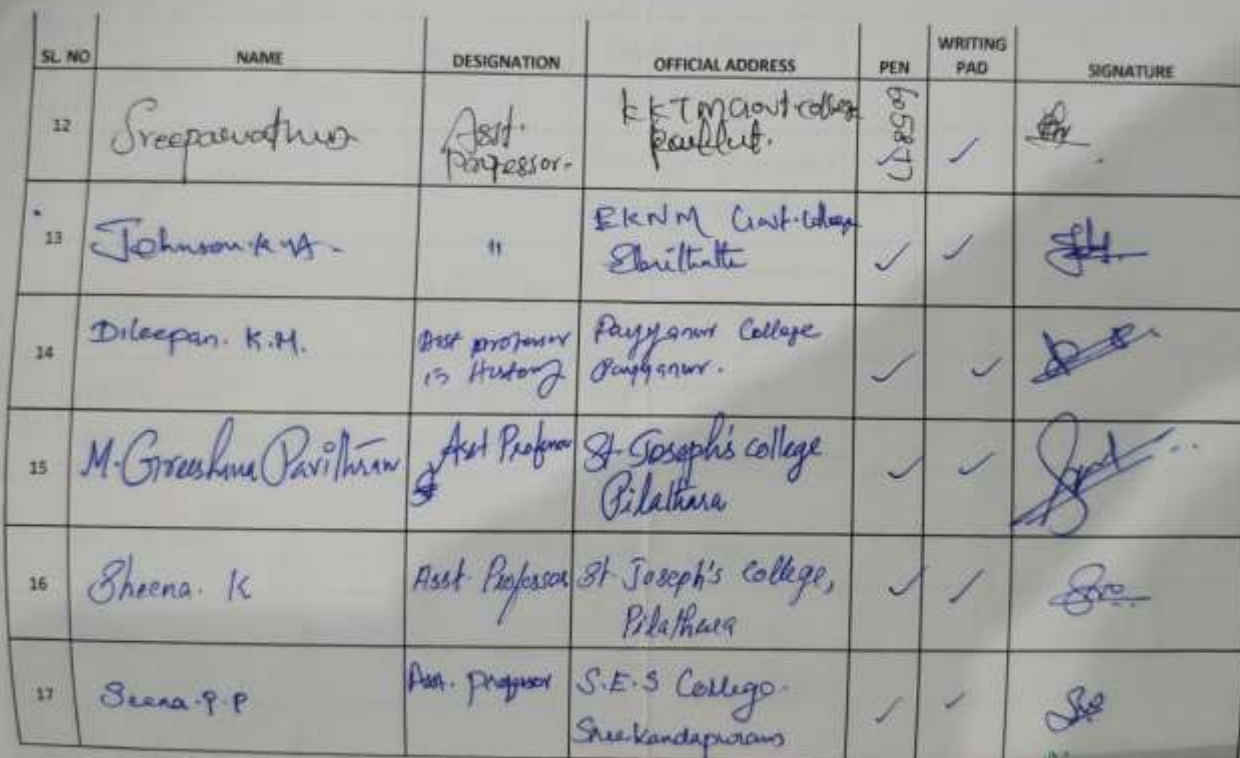 SL. NO NAME DESIGNATION OFFICIAL ADDRESS PEN WRITING PAD SIGNATURE
12 Asst. KKTM Govt college
13 Johnson. K. A. " EKNM Govt. College
Elerithattu
14 Dileepan. K.M. Asst professor Payyanur College
in History Payyanur.
15 M. Greeshma Pavithran Asst Professor St. Joseph's college
Pilathara
16 Sheena. K Asst. Professor St Joseph's College,
Pilathara
17 Seena. P. P Asst. professor S.E.S College.
Sreekandapuram